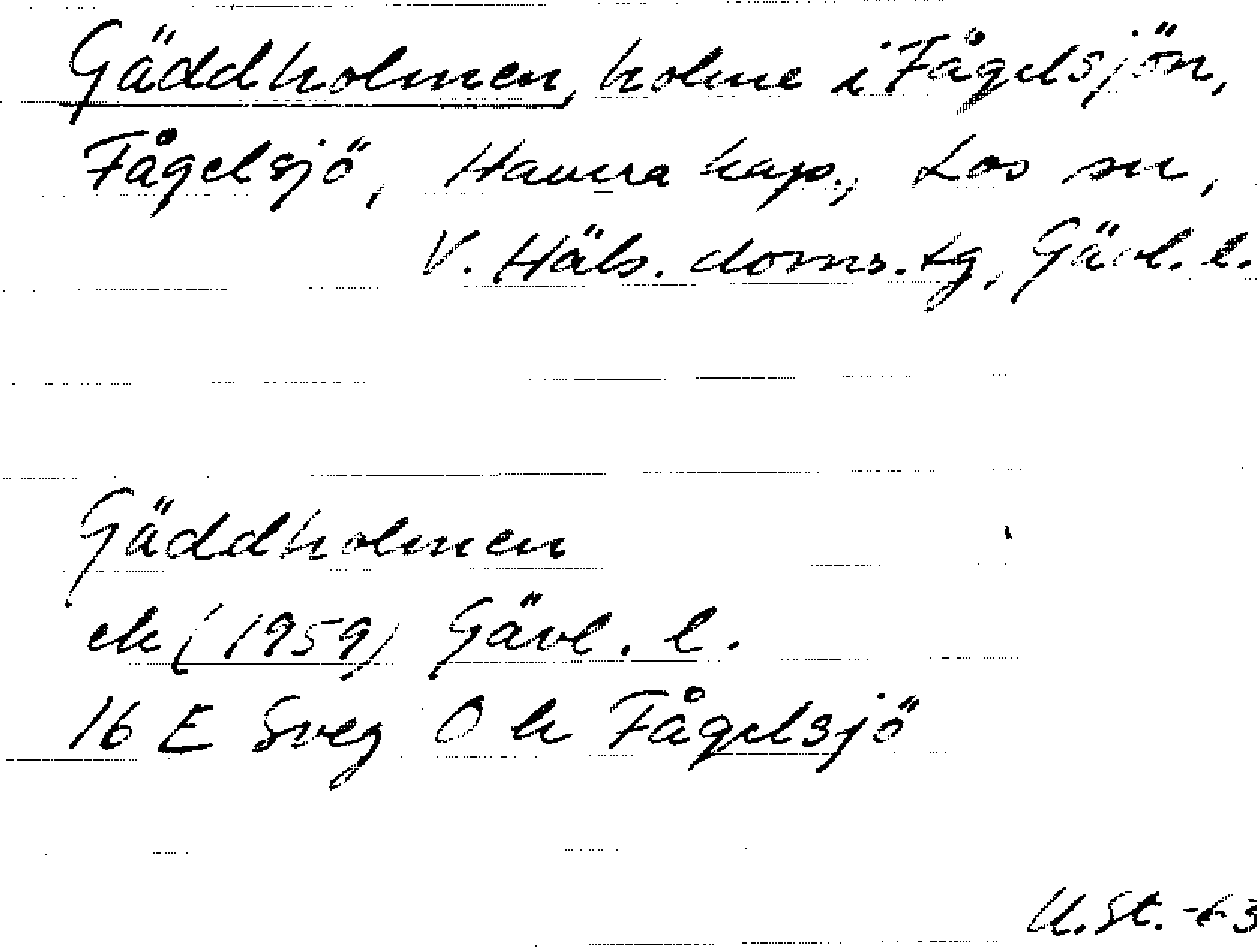 Gäddholmen, holme i Fågelsjön,
Fågelsjö, Hamra kap., Los sn,
V. Häls. doms. tg, Gävl. l.
Gäddholmen
ek (1959) Gävl. l.
16 E Sveg O h Fågelsjö
U.St. -63